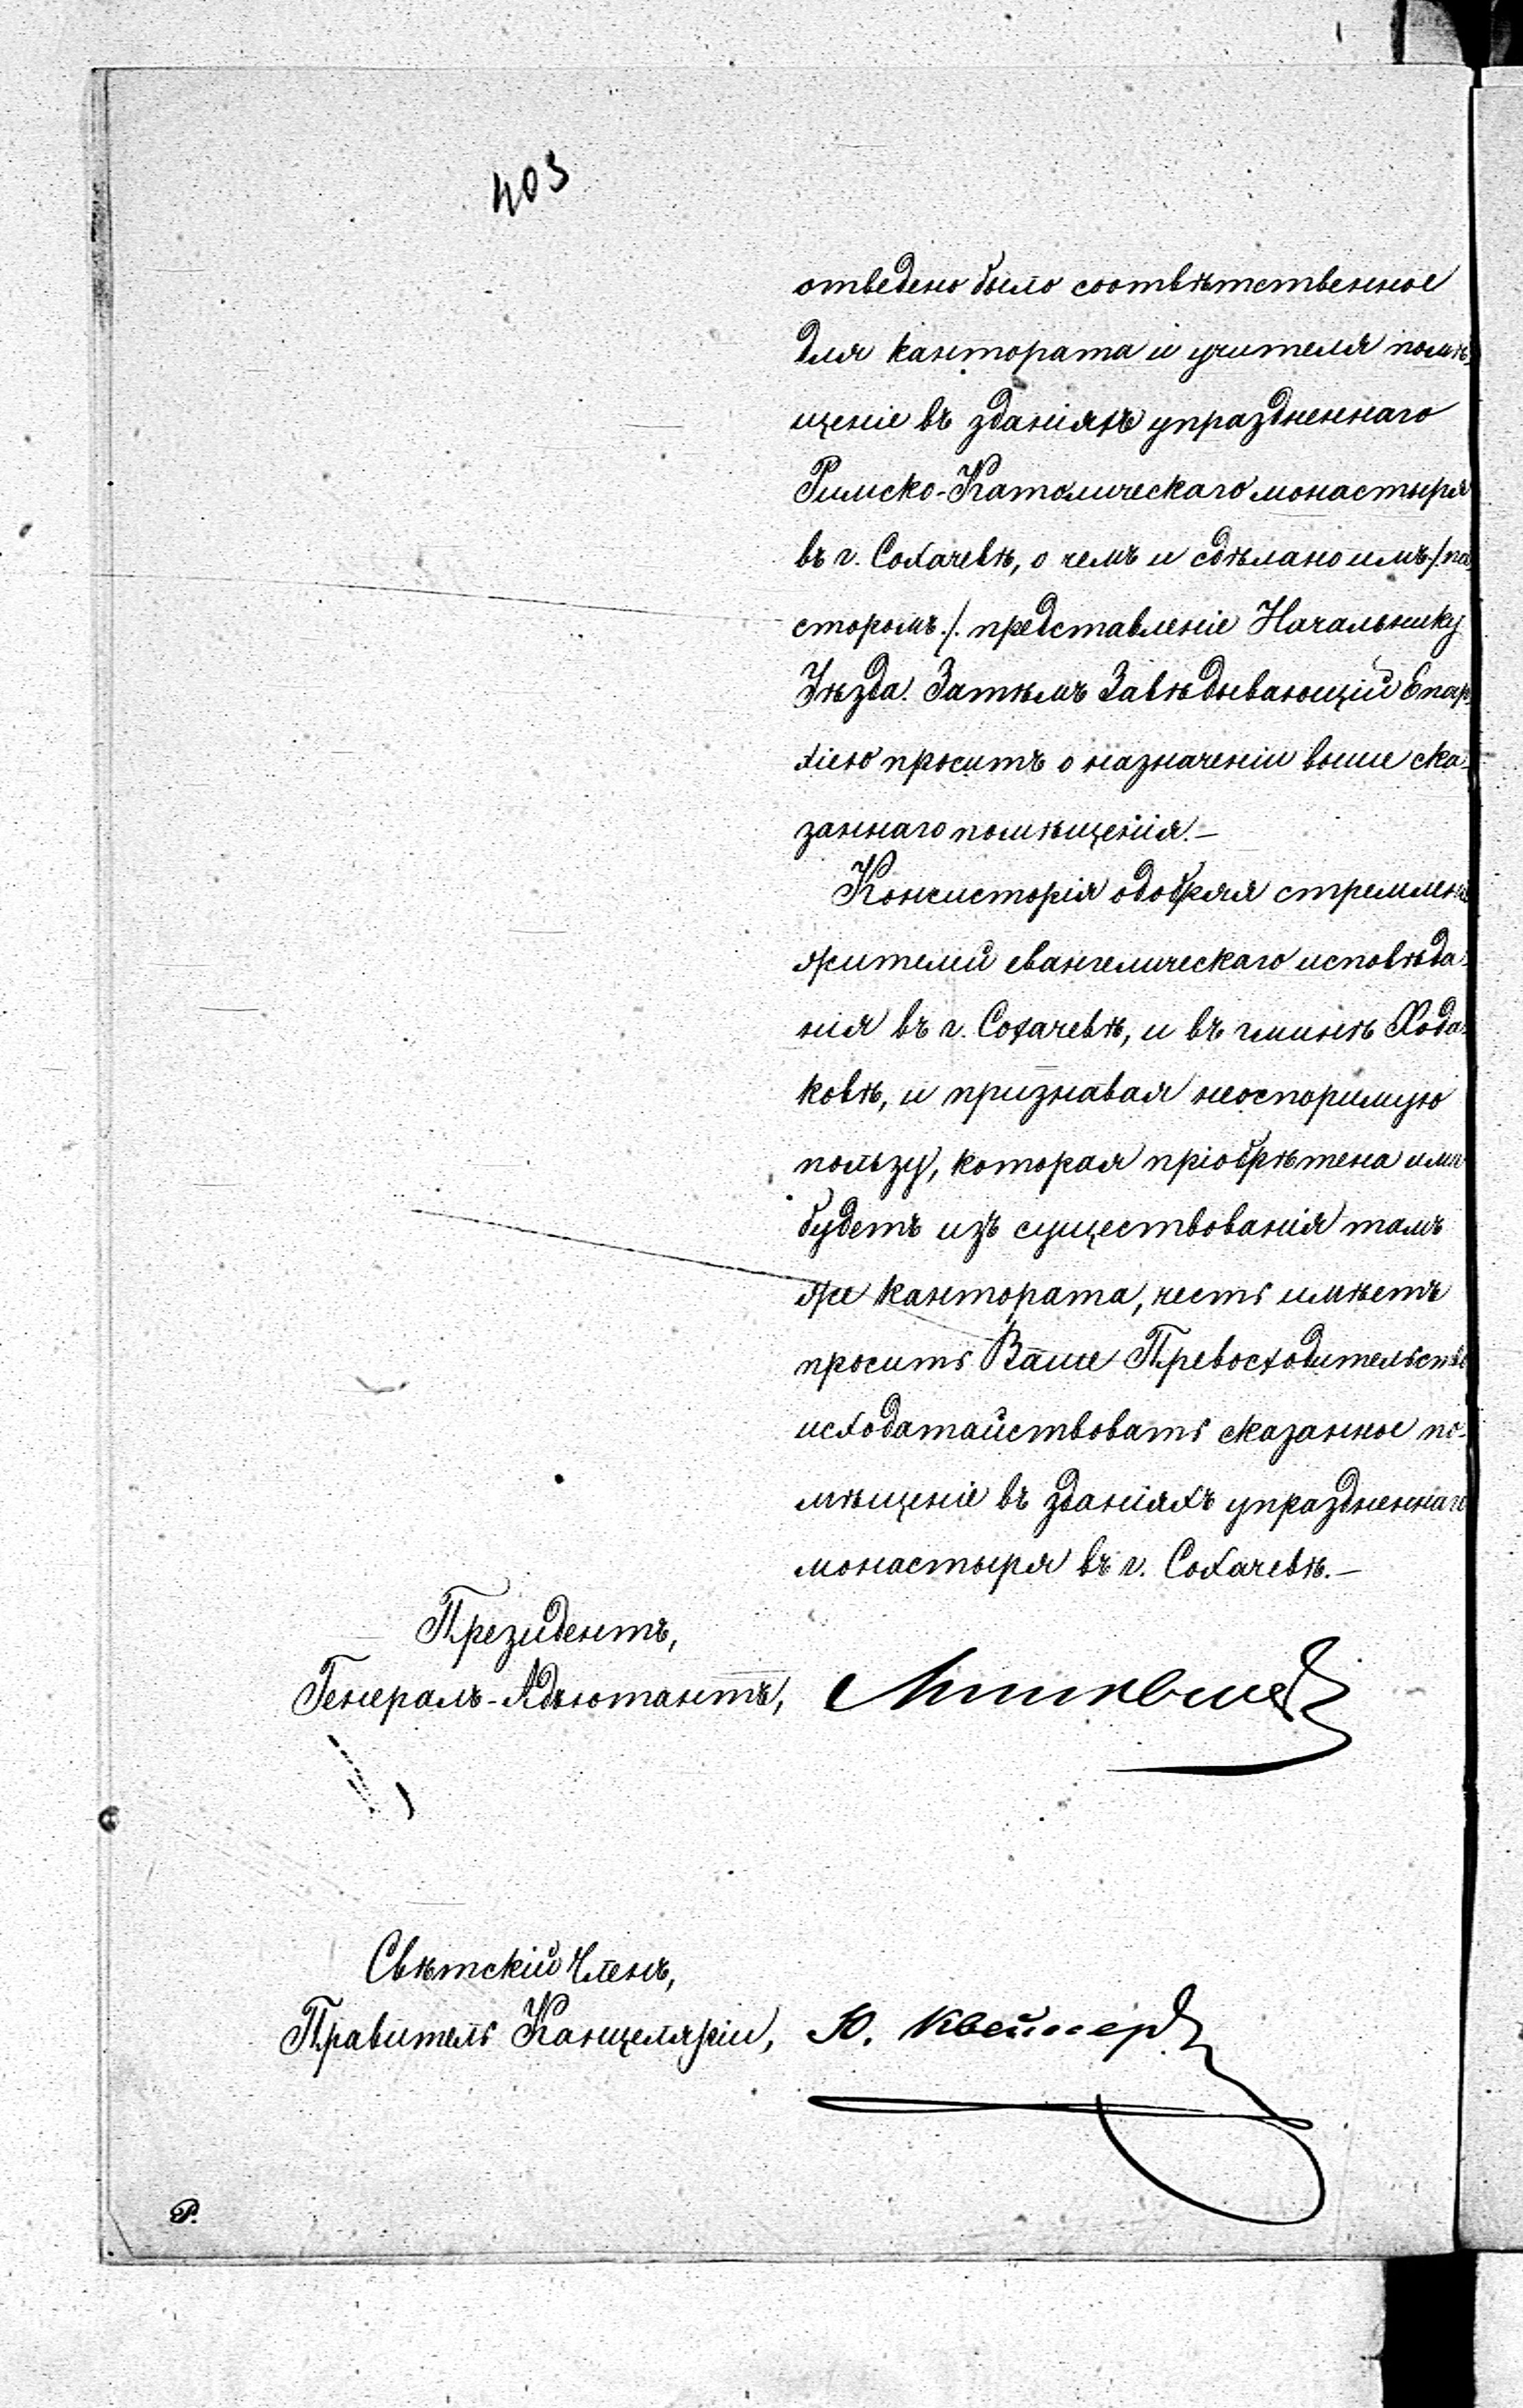 403
отведено было соотвѣтственное
для кантората и учителя помѣ-
щеніе въ зданіяхъ упраздненнаго
Римско-Католическаго монастыря
въ г. Сохачевѣ, о чемъ и сдѣлано имъ /.па-
сторомъ./. представленіе Начальнику
Уѣзда. Затѣмъ Завѣдывающій Епар-
хіею проситъ о назначеніи выше ска-
заннаго помѣщенія.—
Консисторія одобряя стремленіе
жителей евангелическаго исповѣда-
нія въ г. Сохачевѣ, и въ гминѣ Хода-
ковѣ, и признавая неоспоримую
пользу, которая пріобрѣтена ими
будетъ изъ существованія тамъ
же кантората, честь имѣетъ
просить Ваше Превосходительство
исходатайствовать сказанное по-
мѣщеніе въ зданіяхъ упраздненнаго
монастыря въ г. Сохачевѣ.—
Президентъ,
Генералъ-Адъютантъ,
Свѣтскій Членъ,
Правитель Канцеляріи, Ю.
Р.